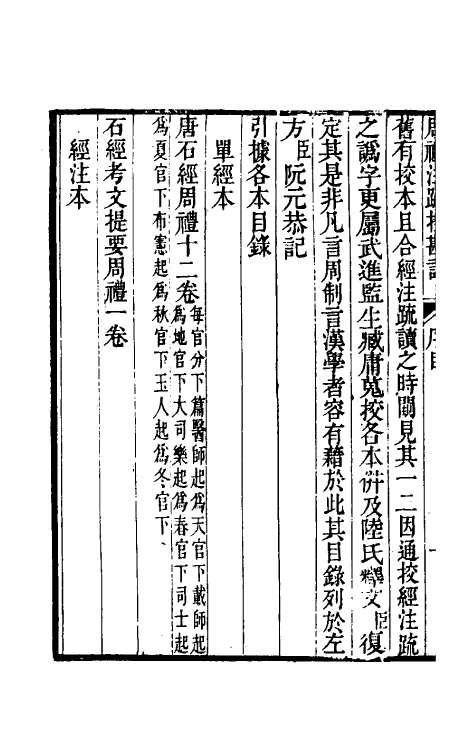 舊有挍本且合經注疏讀之時闚見其一二因通挍經注疏
之譌字更屬武進監生臧庸蒐挍各本併及陸氏釋文臣復
定其是非凡言周制言漢學者容有藉於此其目錄列於左
方臣阮元恭記
引據各本目錄
單經本
唐石經周禮十二卷每官分下篇醫師起爲天官下載師起
爲地官下大司樂起爲春官下司士起
爲夏官下布憲起爲秋官下玉人起爲冬官下
石經考文提要周禮一卷
經注本